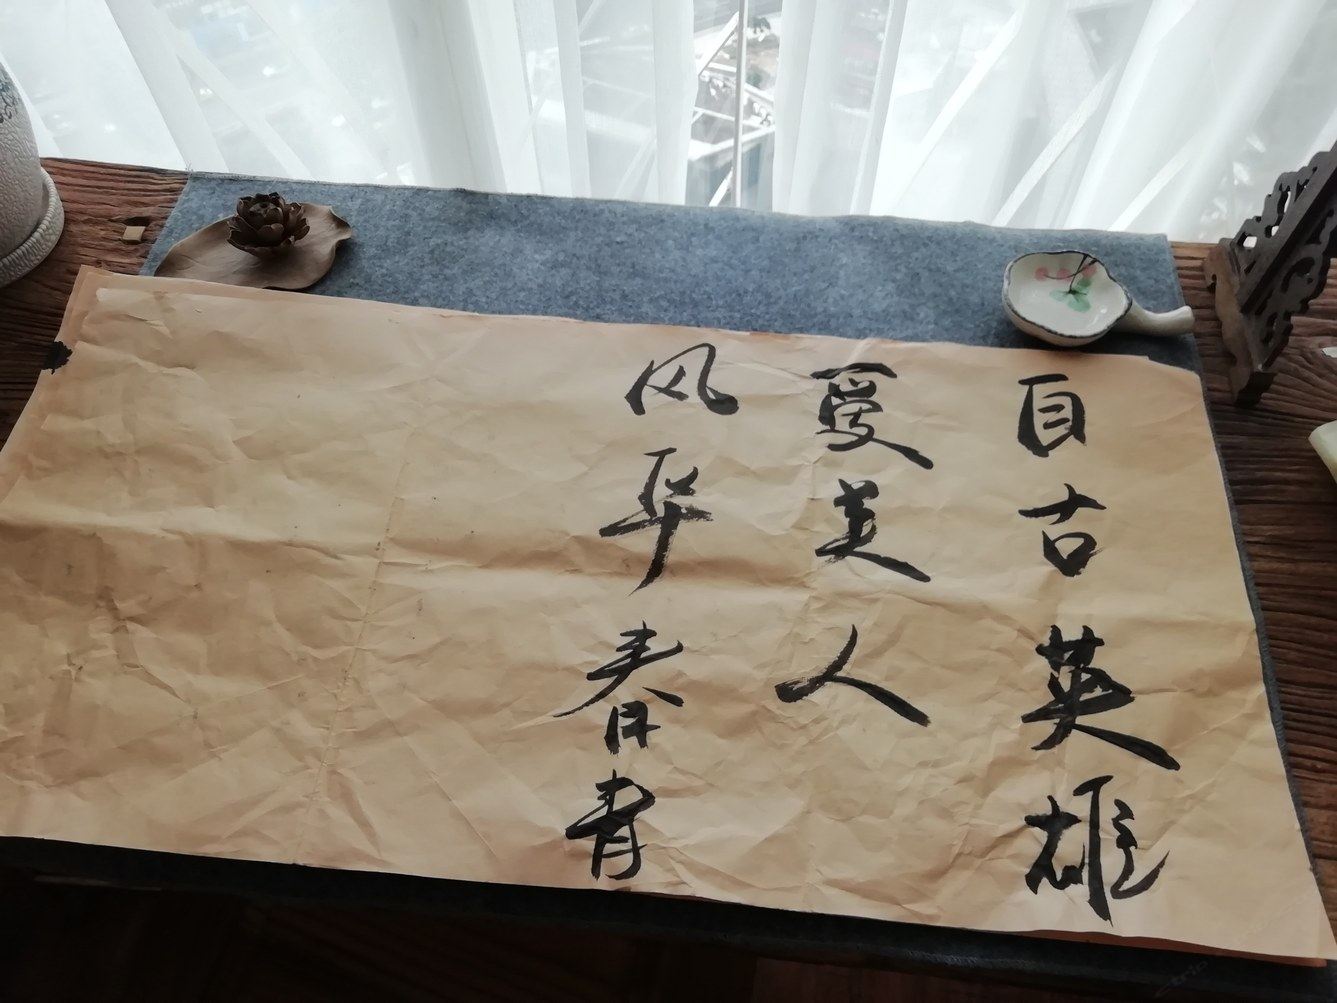 自古英雄
爱美人
风华春青